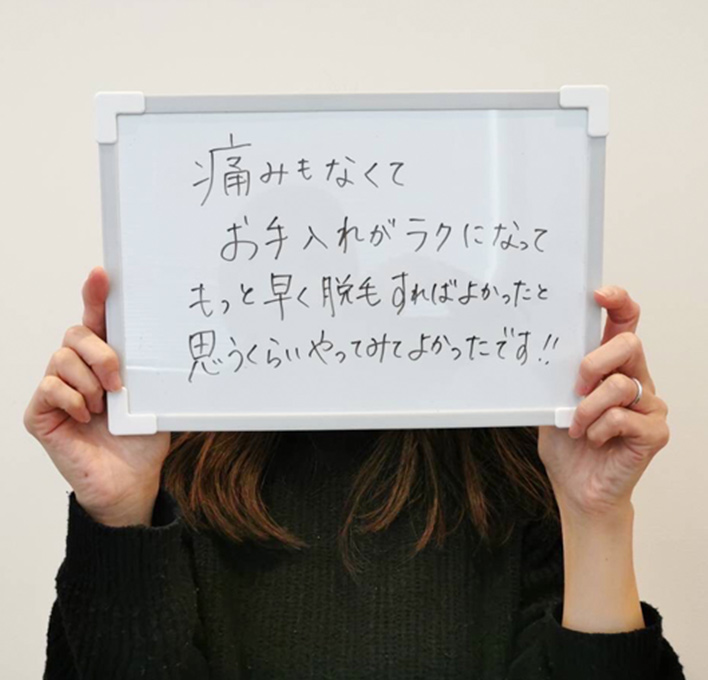 痛みもなくて
お手入れがラクになって
もっと早く脱毛すればよかったと
思うくらいやってみてよかったです!!